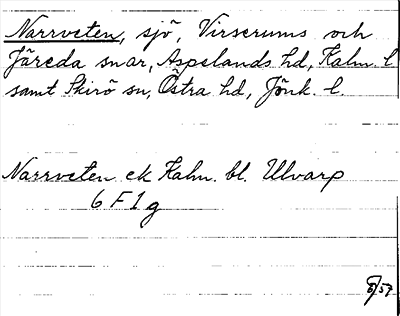 Narrveten, sjö, Virserums och
Järeda snar, Aspelands hd, Kalm. l
samt Skirö sn, Östra hd, Jönk. l.
Narrveten ek Kalm. bl. Ulvarp
6 F 1 g